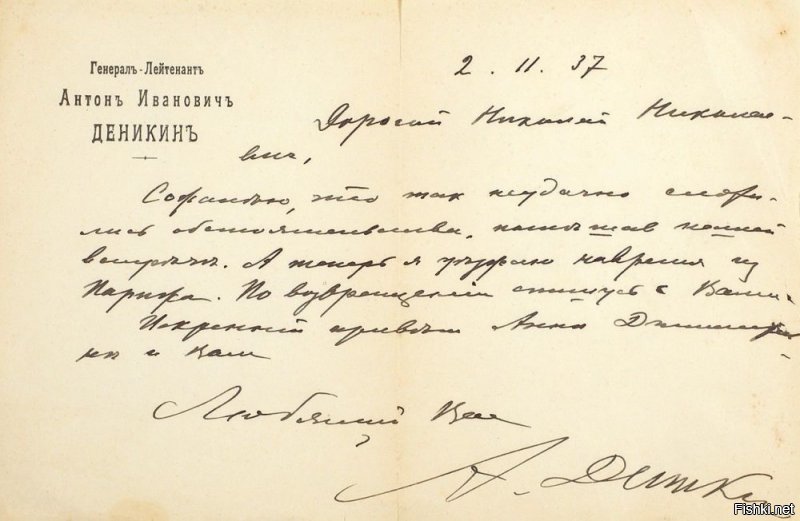 Генералъ-Лейтенантъ
Антонъ Ивановичъ
ДЕНИКИНЪ
2. 11. 37
Дорогой Николай Николае-
вич,
Сожалѣю, что так неудачно сложи-
лись обстоятельства, помѣшав нашей
встрѣчѣ. А теперь я уѣзжаю на время из
Парижа. По возвращеніи спишусь с Вами.
Искренній привѣт Аннѣ
и Вам
Любящий Вас
А. Деникин
Fishki.net